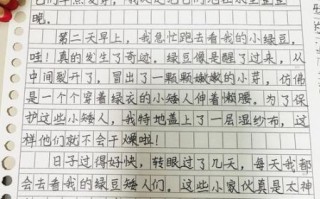 吧。
第二天早上，我急忙跑去看我的小绿豆，
哇！真的发生了奇迹，绿豆像是醒了过来，从
中间裂开了，冒出了一颗颗嫩嫩的小芽，仿佛
是一个个穿着绿衣的小矮人伸着懒腰。为了保
护这些小矮人，我特地盖上了一层湿纱布，这
样他们就不会干燥啦！
日子过得好快，转眼过了几天，每天我都
会去看我的绿豆矮人们。这些小家伙真是太神